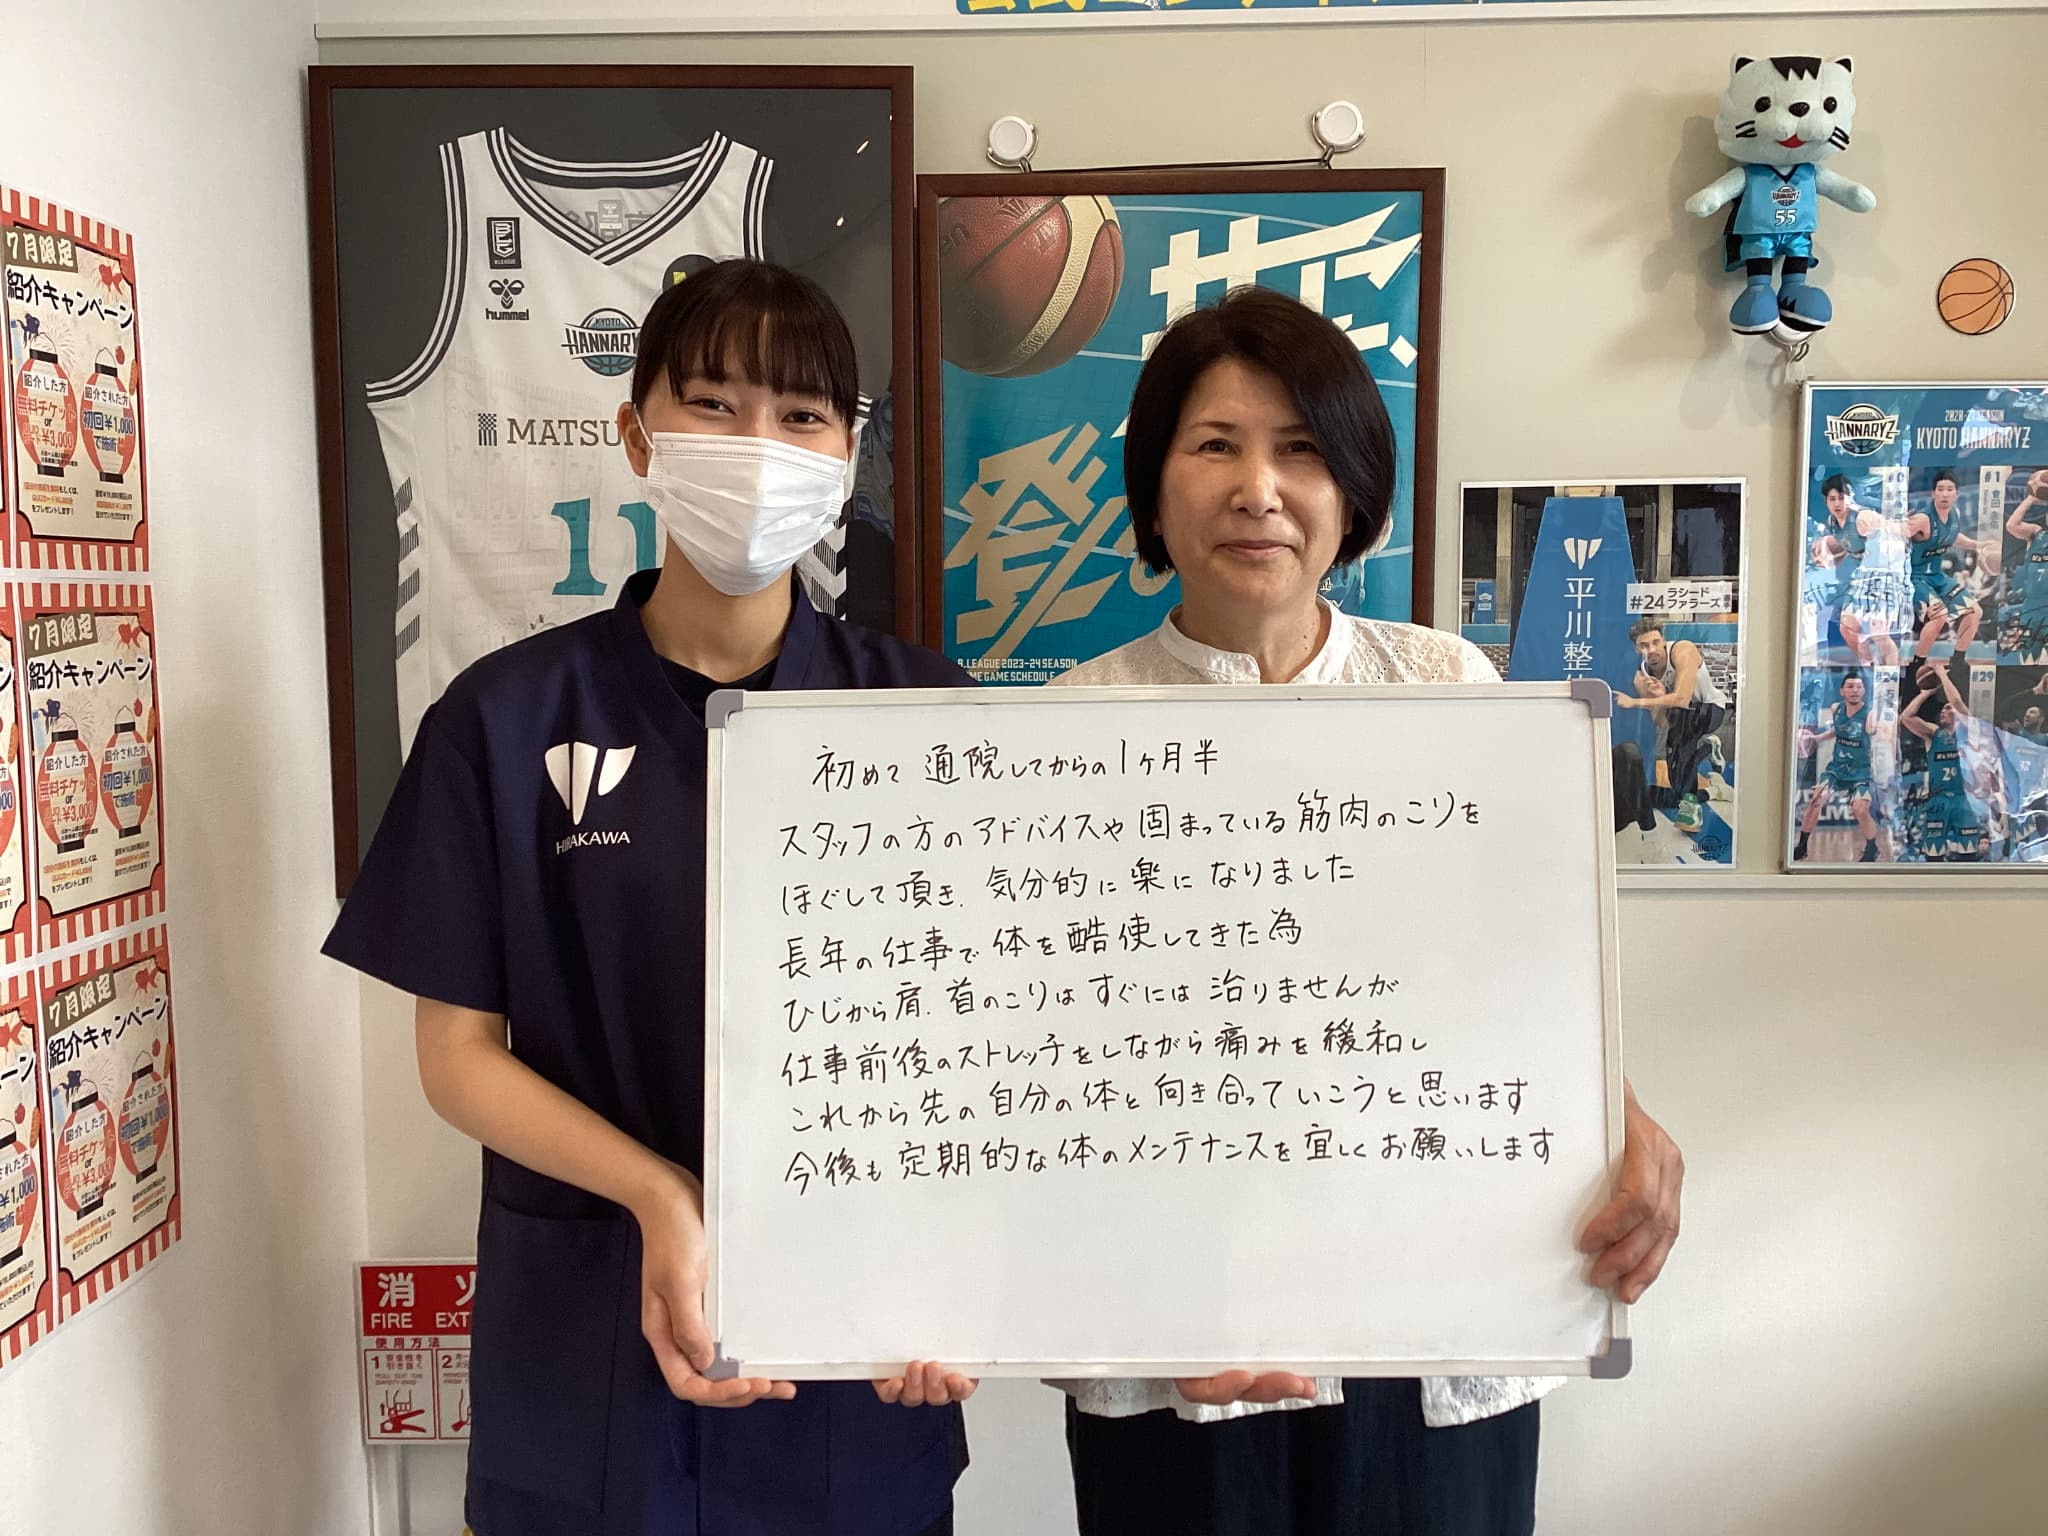 初めて通院してからの1ヶ月半
スタッフの方のアドバイスや固まっている筋肉のこりを
ほぐして頂き、気分的に楽になりました
長年の仕事で体を酷使してきた為
ひじから肩、首のこりはすぐには治りませんが
仕事前後のストレッチをしながら痛みを緩和し
これから先の自分の体と向き合っていこうと思います
今後も定期的な体のメンテナンスを宜しくお願いします
HIRAKAWA
hummel
KYOTO
HANNARYZ
MATSU
11
共に、
登
B.LEAGUE 2023-24 SEASON
HOME GAME SCHEDULE
HANNARYZ
55
平川整体
#24 ラシード ファラーズ
HANNARYZ
KYOTO
HANNARYZ
2020-21 SEASON
KYOTO HANNARYZ
#1
#29
7月限定
紹介キャンペーン
紹介した方
無料チケット
or
¥3,000
紹介された方
初回¥1,000
で施術
プレゼントします!
7月限定
紹介キャンペーン
紹介した方
無料チケット
or
¥3,000
紹介された方
初回¥1,000
で施術
プレゼントします!
7月限定
紹介キャンペーン
紹介した方
無料チケット
or
¥3,000
紹介された方
初回¥1,000
で施術
消 火
FIRE EXT
使用方法
1 安全栓を引き抜く
2